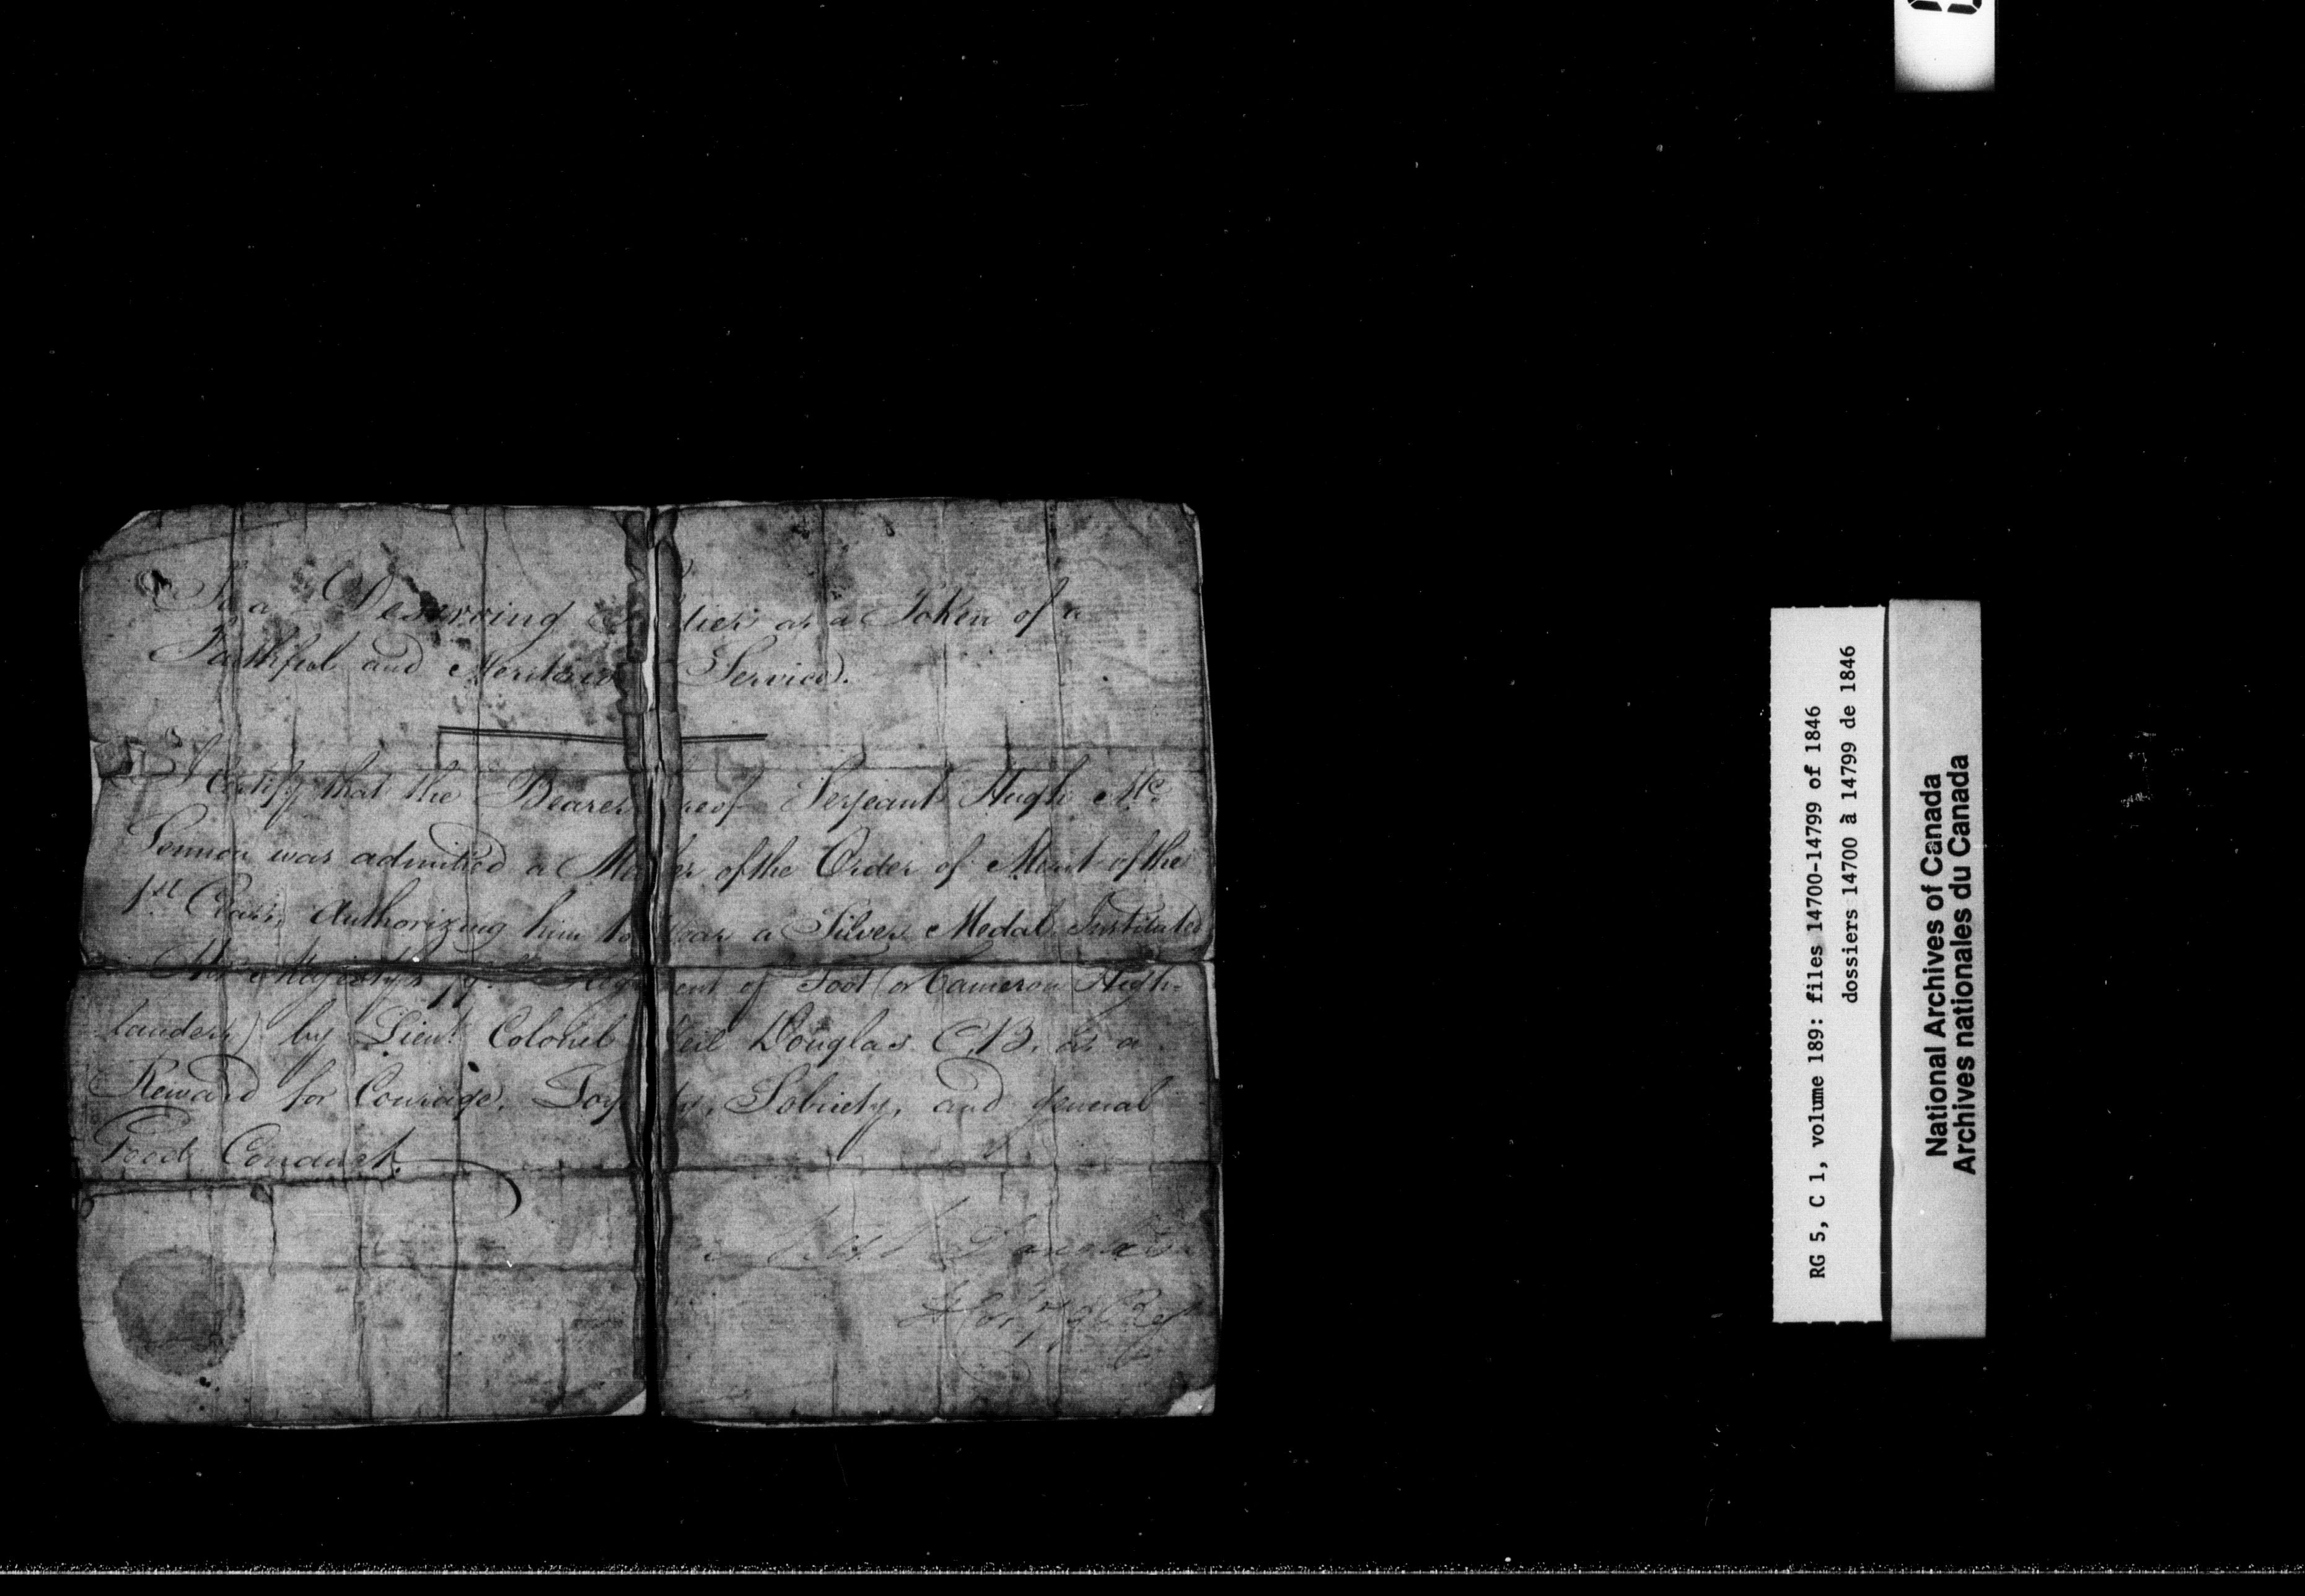 To a Deserving Soldier as a Token of a
Faithful and Meritorious Service.
I Certify that the Bearer hereof Serjeant Hugh Mc.
Lennon was admitted a Member of the Order of Merit of the
1st Class, Authorizing him to wear a Silver Medal, Instituted
79th Regiment of Foot (or Cameron High-
landers) by Lieut Colonel Neil Douglas C.B. as a
Reward for Courage, Loyalty, Sobriety, and general
Good Conduct.
Neil Douglas
Lt Col 79 Reg
RG 5, C 1, volume 189: files 14700-14799 of 1846
dossiers 14700 à 14799 de 1846
National Archives of Canada
Archives nationales du Canada